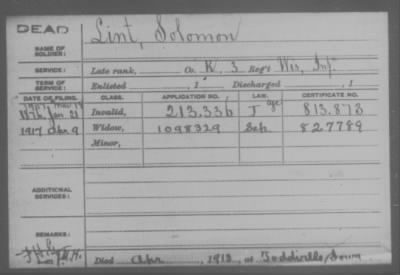 DEAD
NAME OF SOLDIER: Lint, Solomon
SERVICE: Late rank, Co. K, 3 Reg't Wis, Inf
TERM OF SERVICE: Enlisted , 1 Discharged , 1
DATE OF FILING. CLASS. APPLICATION NO. LAW. CERTIFICATE NO.
Jan. 21 Invalid, 213,336 J age 813,873
1917 Apr 9 Widow, 1098329 827789
Minor,
ADDITIONAL SERVICES:
REMARKS:
Died Apr , 1912, at Toddville, Iowa